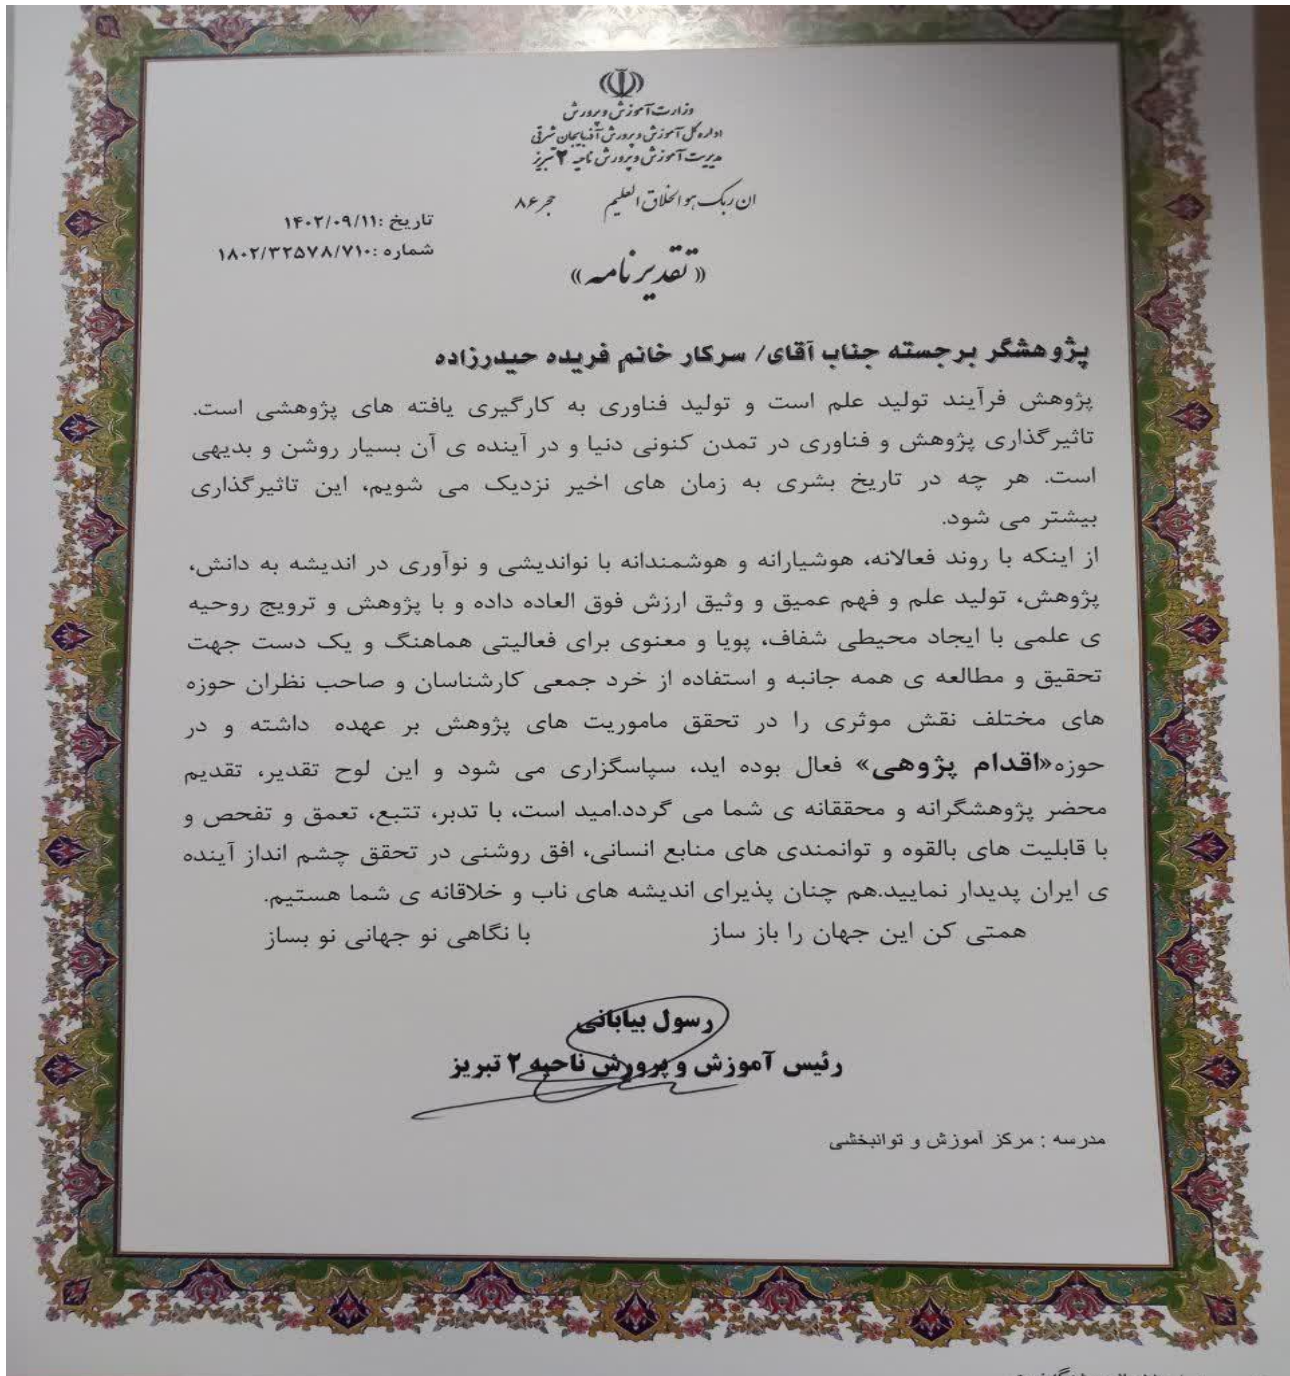 وزارت آموزش و پرورش
اداره کل آموزش و پرورش آذربایجان شرقی
مدیریت آموزش و پرورش ناحیه ۲ تبریز
ان ربک هو الخلاق العلیم حجر ۸۶
تاریخ :۱۴۰۲/۰۹/۱۱
شماره :۱۸۰۲/۳۲۵۷۸/۷۱۰
«تقدیر نامه»
پژوهشگر برجسته جناب آقای/ سرکار خانم فریده حیدرزاده
پژوهش فرآیند تولید علم است و تولید فناوری به کارگیری یافته های پژوهشی است.
تاثیرگذاری پژوهش و فناوری در تمدن کنونی دنیا و در آینده ی آن بسیار روشن و بدیهی
است. هر چه در تاریخ بشری به زمان های اخیر نزدیک می شویم، این تاثیرگذاری
بیشتر می شود.
از اینکه با روند فعالانه، هوشیارانه و هوشمندانه با نواندیشی و نوآوری در اندیشه به دانش،
پژوهش، تولید علم و فهم عمیق و وثیق ارزش فوق العاده داده و با پژوهش و ترویج روحیه
ی علمی با ایجاد محیطی شفاف، پویا و معنوی برای فعالیتی هماهنگ و یک دست جهت
تحقیق و مطالعه ی همه جانبه و استفاده از خرد جمعی کارشناسان و صاحب نظران حوزه
های مختلف نقش موثری را در تحقق ماموریت های پژوهش بر عهده داشته و در
حوزه«اقدام پژوهی» فعال بوده اید، سپاسگزاری می شود و این لوح تقدیر، تقدیم
محضر پژوهشگرانه و محققانه ی شما می گردد.امید است، با تدبر، تتبع، تعمق و تفحص و
با قابلیت های بالقوه و توانمندی های منابع انسانی، افق روشنی در تحقق چشم انداز آینده
ی ایران پدیدار نمایید.هم چنان پذیرای اندیشه های ناب و خلاقانه ی شما هستیم.
همتی کن این جهان را باز ساز با نگاهی نو جهانی نو بساز
رسول بیابانی
رئیس آموزش و پرورش ناحیه ۲ تبریز
مدرسه : مرکز آموزش و توانبخشی